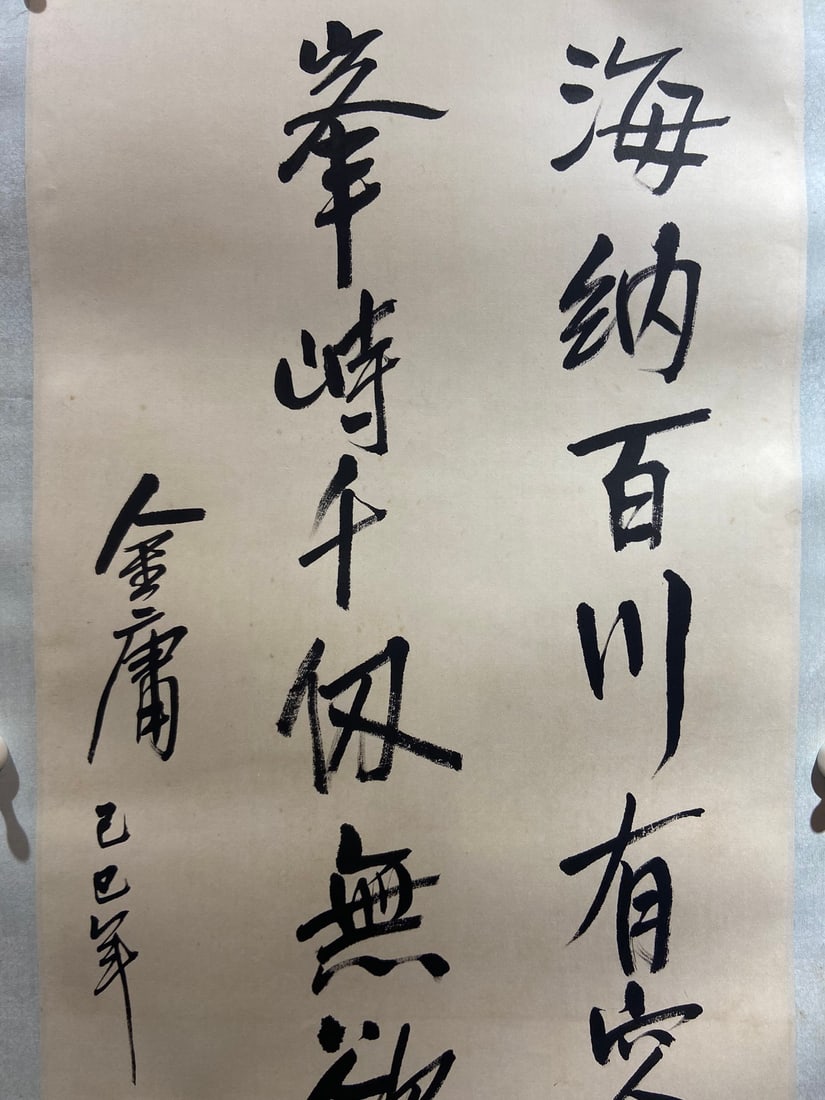 海纳百川有容
峯峙千仞無欲
金庸
己巳年